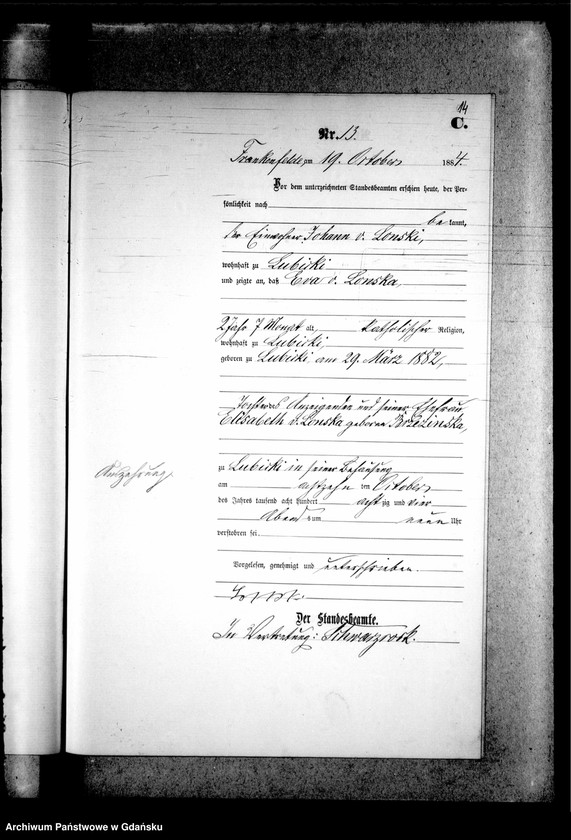 14
C.
Nr. 13.
Frankenfelde am 19. October 1884.
Vor dem unterzeichneten Standesbeamten erschien heute, der Per-
sönlichkeit nach
be kannt,
der Einwohner Johann v. Lonski,
wohnhaft zu Lubicki
und zeigte an, daß Eva v. Lonska,
2 Jahr 7 Monat alt, katholischer Religion,
wohnhaft zu Lubicki,
geboren zu Lubicki, am 29. März 1882,
Tochter des Anzeigenden und seiner Ehefrau
Elisabeth v. Lonska geborene Brzezinska,
zu Lubicki in seiner Behausung
am achtzehn ten October
des Jahres tausend acht hundert acht zig und vier
Abend s um neun Uhr
verstorben sei.
Vorgelesen, genehmigt und unterschrieben.
Der Standesbeamte.
In Vertretung: Schwarzrock.
Auszehrung.
Archiwum Państwowe w Gdańsku